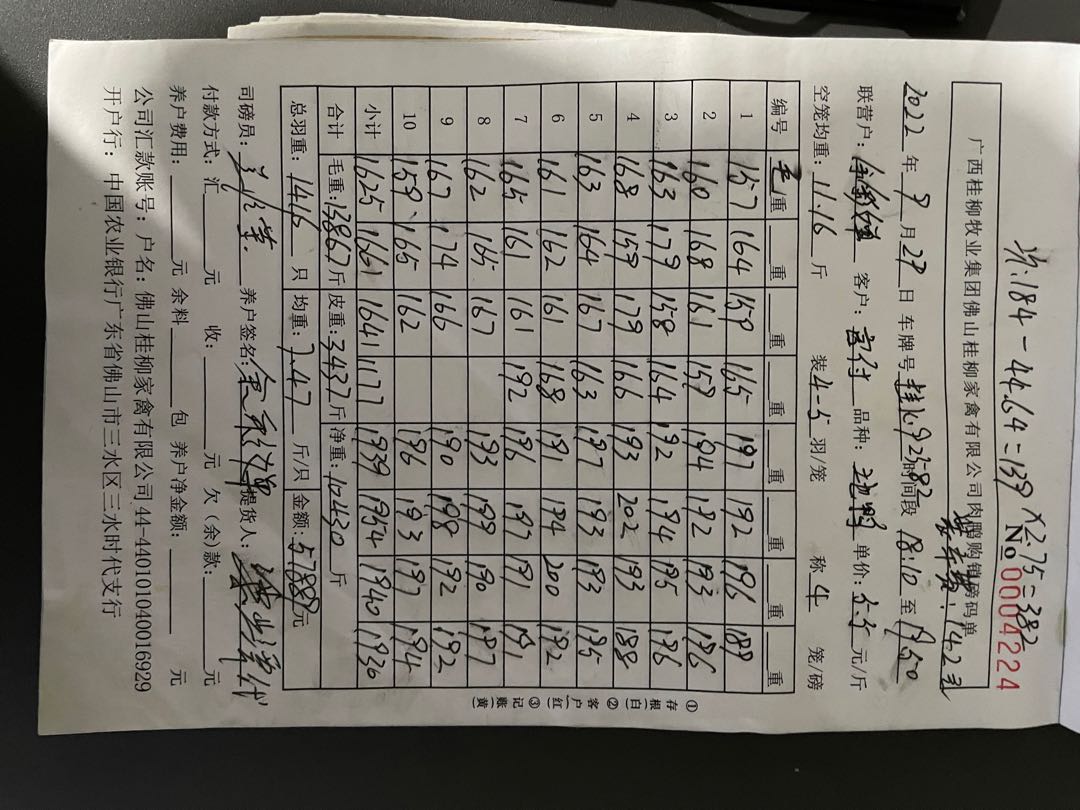 共:184-44.64=139×2.75=382
No 0004224
广西桂柳牧业集团佛山桂柳家禽有限公司肉鹏购销磅码单
2022 年 9 月 27 日 车牌号 时间段 18:10 至 19:50
联营户: 客户: 品种: 单价: 元/斤
空笼均重: 11.16 斤 装 4-5 羽/笼 称 4 笼/磅
编号 毛重 重 重 重 重 重 重 重
1 157 164 159 165 197 192 196 189
2 160 168 161 159 194 192 193 196
3 163 179 158 164 192 194 195 196
4 168 159 179 166 193 202 193 188
5 163 164 167 163 197 193 193 195
6 161 162 162 168 191 194 200 192
7 165 161 161 192 196 197 191 191
8 162 165 167 193 199 190 197
9 167 174 166 190 198 192 192
10 159 165 162 196 193 197 194
小计 1625 1661 1641 1177 1939 1954 1940 1930
合计 毛重:13867斤 皮重:3437斤 净重:10430斤
总羽重: 1416 只 均重: 7.47 斤/只 金额: 57889元
司磅员: 养户签名: 提货人:
付款方式: 汇 元 收: 元 欠(余)款: 元
养户费用: 元 余料 包 养户净金额: 元
公司汇款账号: 户名: 佛山桂柳家禽有限公司44-440101040016929
开户行: 中国农业银行广东省佛山市三水区三水时代支行
①存根(白) ②客户(红) ③记账(黄)